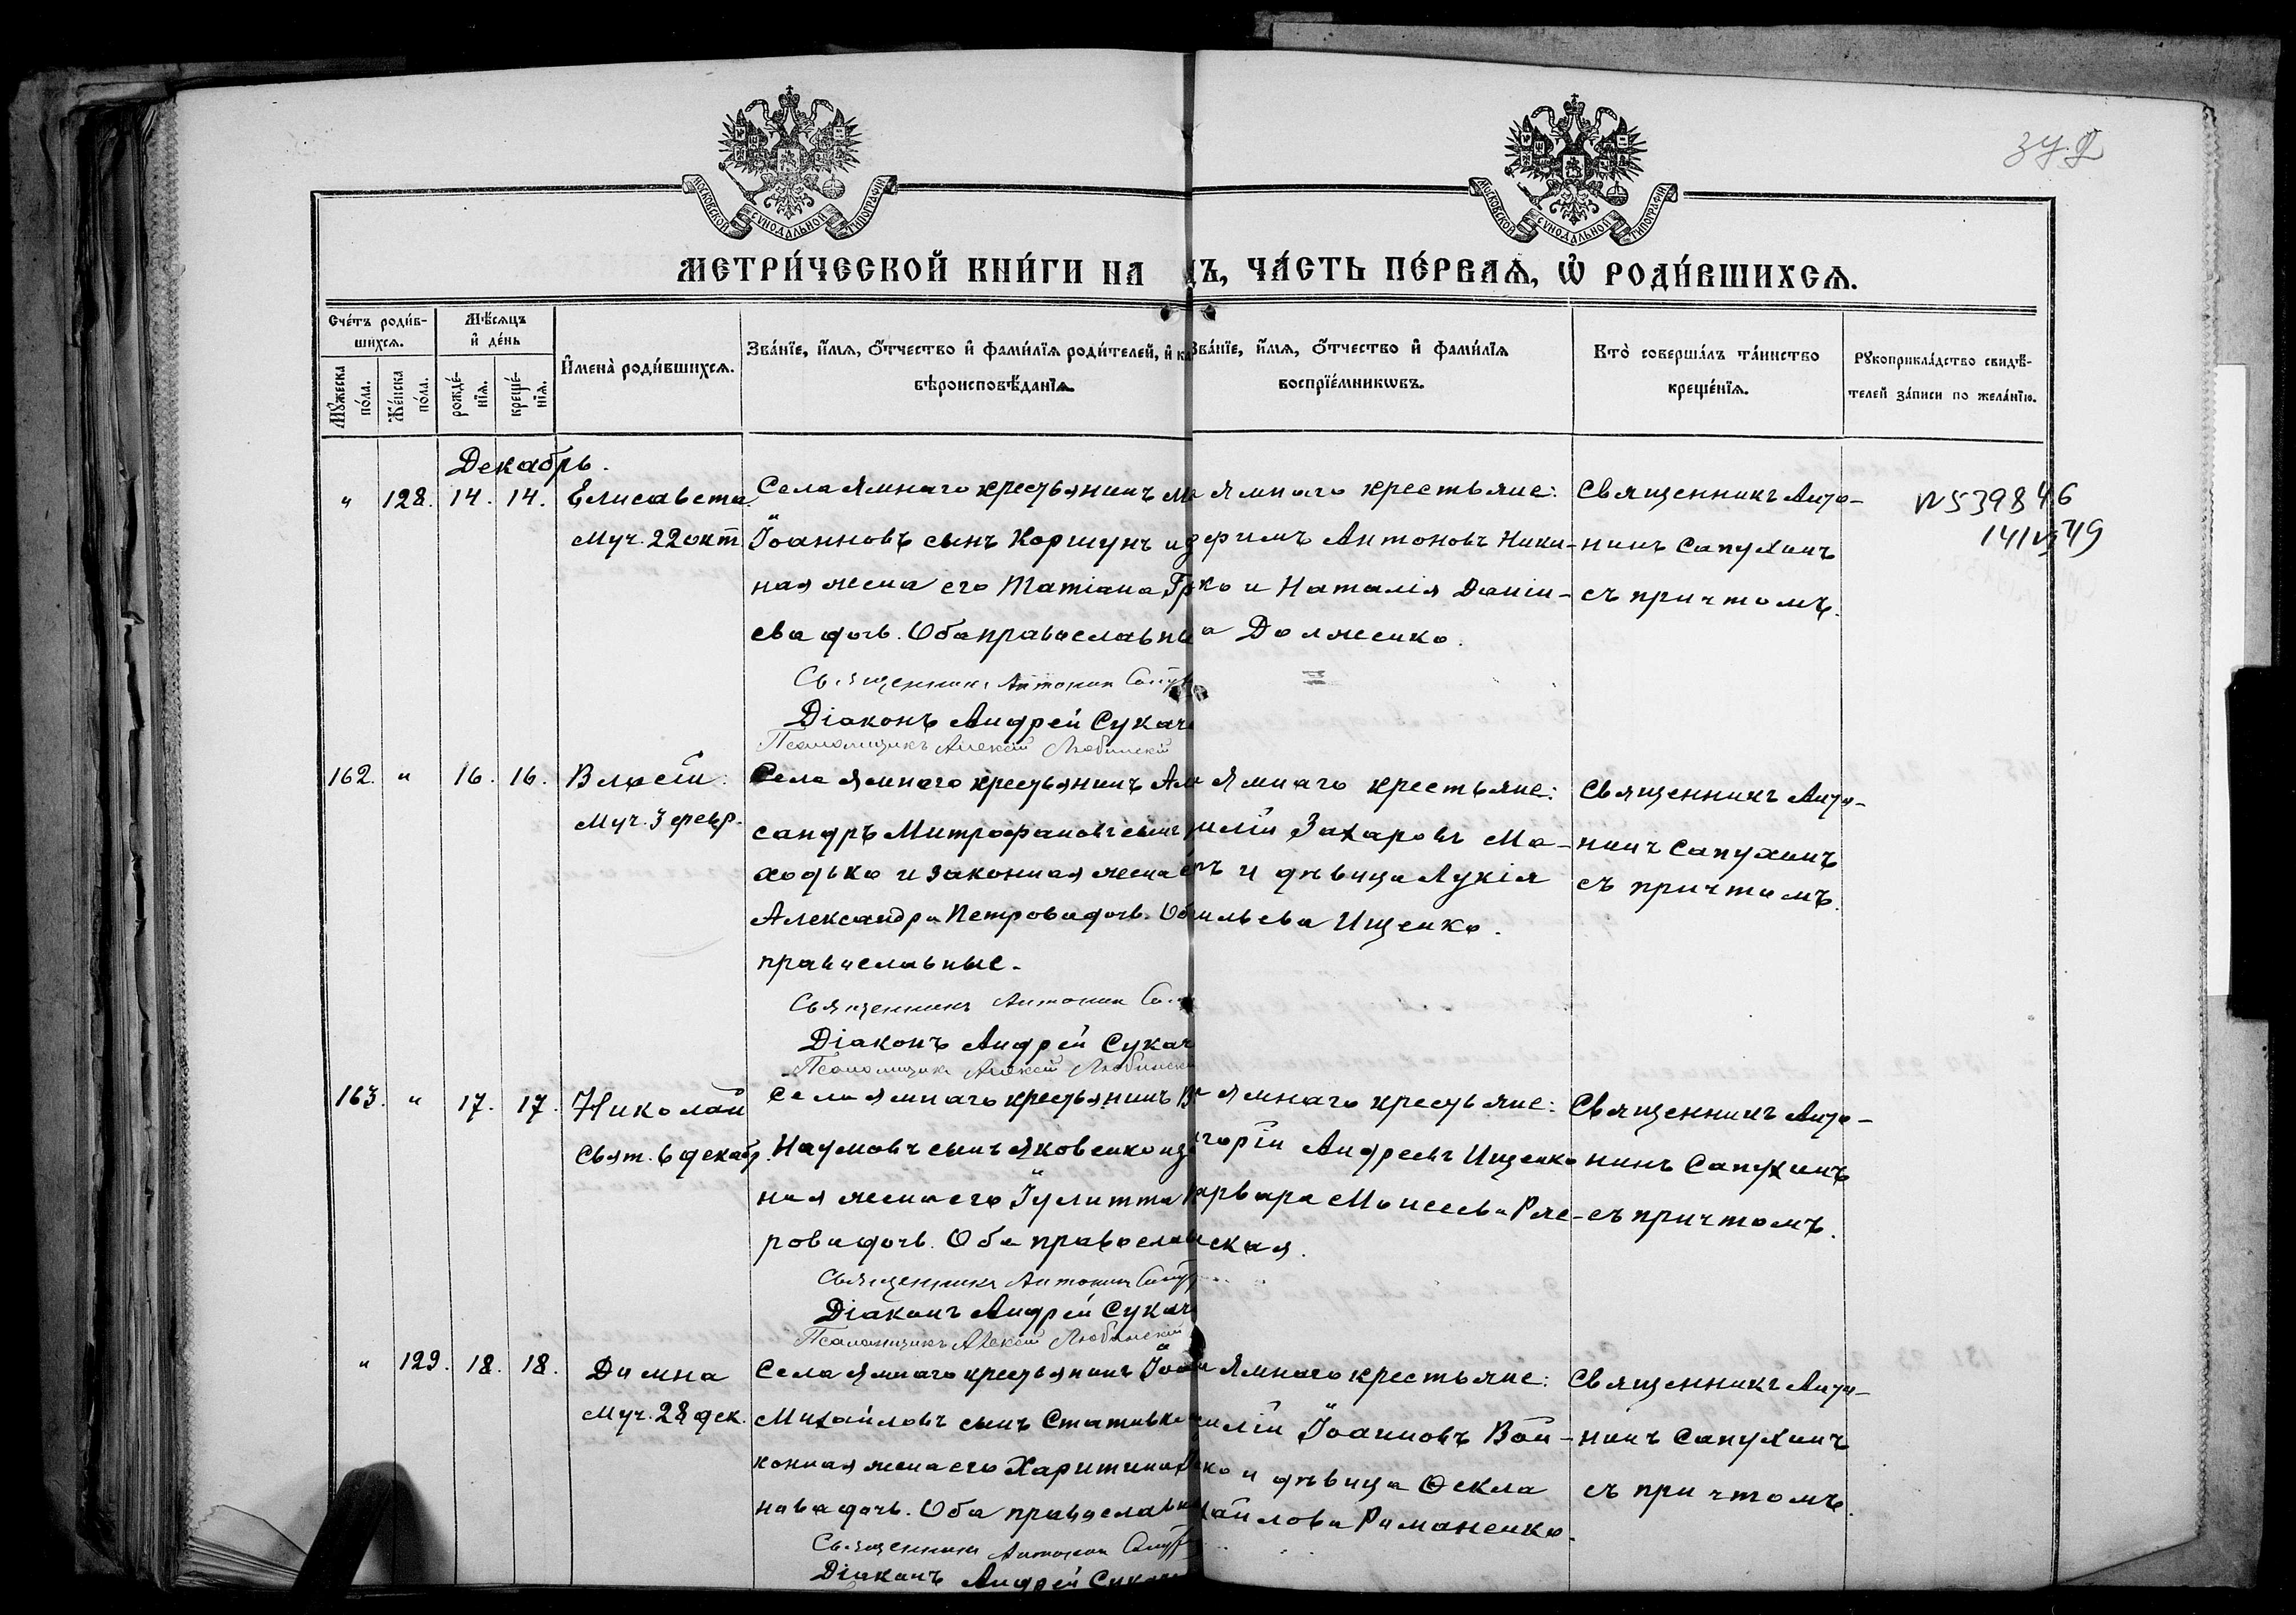 МОСКОВСКОЙ СУНОДАЛЬНОЙ ТИПОГРАФІИ
МОСКОВСКОЙ СУНОДАЛЬНОЙ ТИПОГРАФІИ
МЕТРИ́ЧЕСКОЙ КНИ́ГИ НА
ДЪ, ЧА́СТЬ ПЕ́РВАѦ, Ѡ҆ РОДИ́ВШИХСѦ.
Сче́тъ роди́в-
шихсѧ.
Мꙋ́жеска по́ла.
Же́нска по́ла.
Мѣ́сѧцъ
и҆ де́нь
рожде́-
нїѧ.
креще́-
нїѧ.
И҆мена̀ роди́вшихсѧ.
Зва́нїе, и҆́мѧ, ѻ҆́тчество и҆ фами́лїѧ роди́телей, и҆ ка
вѣроисповѣ́данїѧ.
Зва́нїе, и҆́мѧ, ѻ҆́тчество и҆ фами́лїѧ
воспрїе́мникѡвъ.
Кто̀ соверша́лъ та́инство
креще́нїѧ.
Рꙋкоприкла́дство свидѣ́-
телей за́писи по жела́нїю.
Декабрь.
" 128. 14. 14. Елисавета
Муч. 22 окт
Села Ямнаго крестьянинъ
Іоанновъ сынъ Коршунъ и з
ная жена его Татіана Гр
ева дочь. Оба православны
Священникъ Антонин Сапух
Діаконъ Андрей Сукач
Псаломщикъ Алексій Любинскій
Ямнаго крестьяне:
фимъ Антоновъ Ники-
ко и Наталія Даніи-
а Долженко.
Священникъ Анто-
нинъ Сапухинъ
съ причтомъ.
N539846
141
49
162. " 16. 16. Власій
Муч. 3 февр.
Села Ямнаго крестьянинъ Але
сандръ Митрофановъ сынъ
ходько и законная жена е
Александра Петрова дочь. Об
православные.
Священникъ Антонин Са
Діаконъ Андрей Сукач
Псаломщикъ Алексій Любинскій
Ямнаго крестьяне:
илій Захаровъ Мо-
ъ и дѣвица Лукія
ильева Ищенко.
Священникъ Анто-
нинъ Сапухинъ
съ причтомъ.
163. " 17. 17. Николай
Свят. 6 декаб
Села Ямнаго крестьянинъ
Наумовъ сынъ Яковенко и з
ная жена его Іулитта
рова дочь. Оба православ
Священникъ Антонин Сапух
Діаконъ Андрей Сукач
Псаломщикъ Алексій Любинскій
Ямнаго крестьяне:
горій Андреевъ Ищенко
арвара Моисеева Рже-
ская.
Священникъ Анто-
нинъ Сапухинъ
съ причтомъ.
" 129. 18. 18. Домна
Муч. 28 дек.
Села Ямнаго крестьянинъ Іоан
Михайловъ сынъ Стативка
конная жена его Харитина
нова дочь. Оба православны
Священникъ Антонин Сапух
Діаконъ Андрей Сукач
Ямнаго крестьяне:
силій Іоанновъ Вой-
ко и дѣвица Ѳекла
хайлова Романенко.
Священникъ Анто-
нинъ Сапухинъ
съ причтомъ.